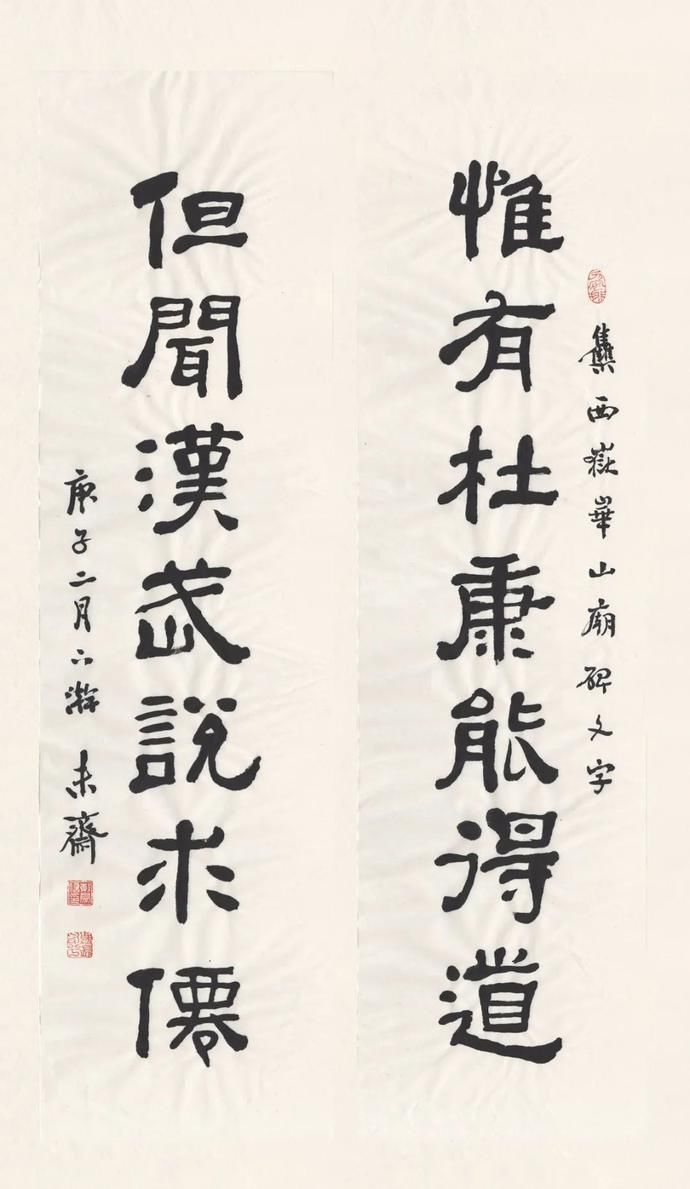 集西嶽華山廟碑文字
惟有杜康能得道
但聞漢武說求僊
庚子二月下澣 未齋